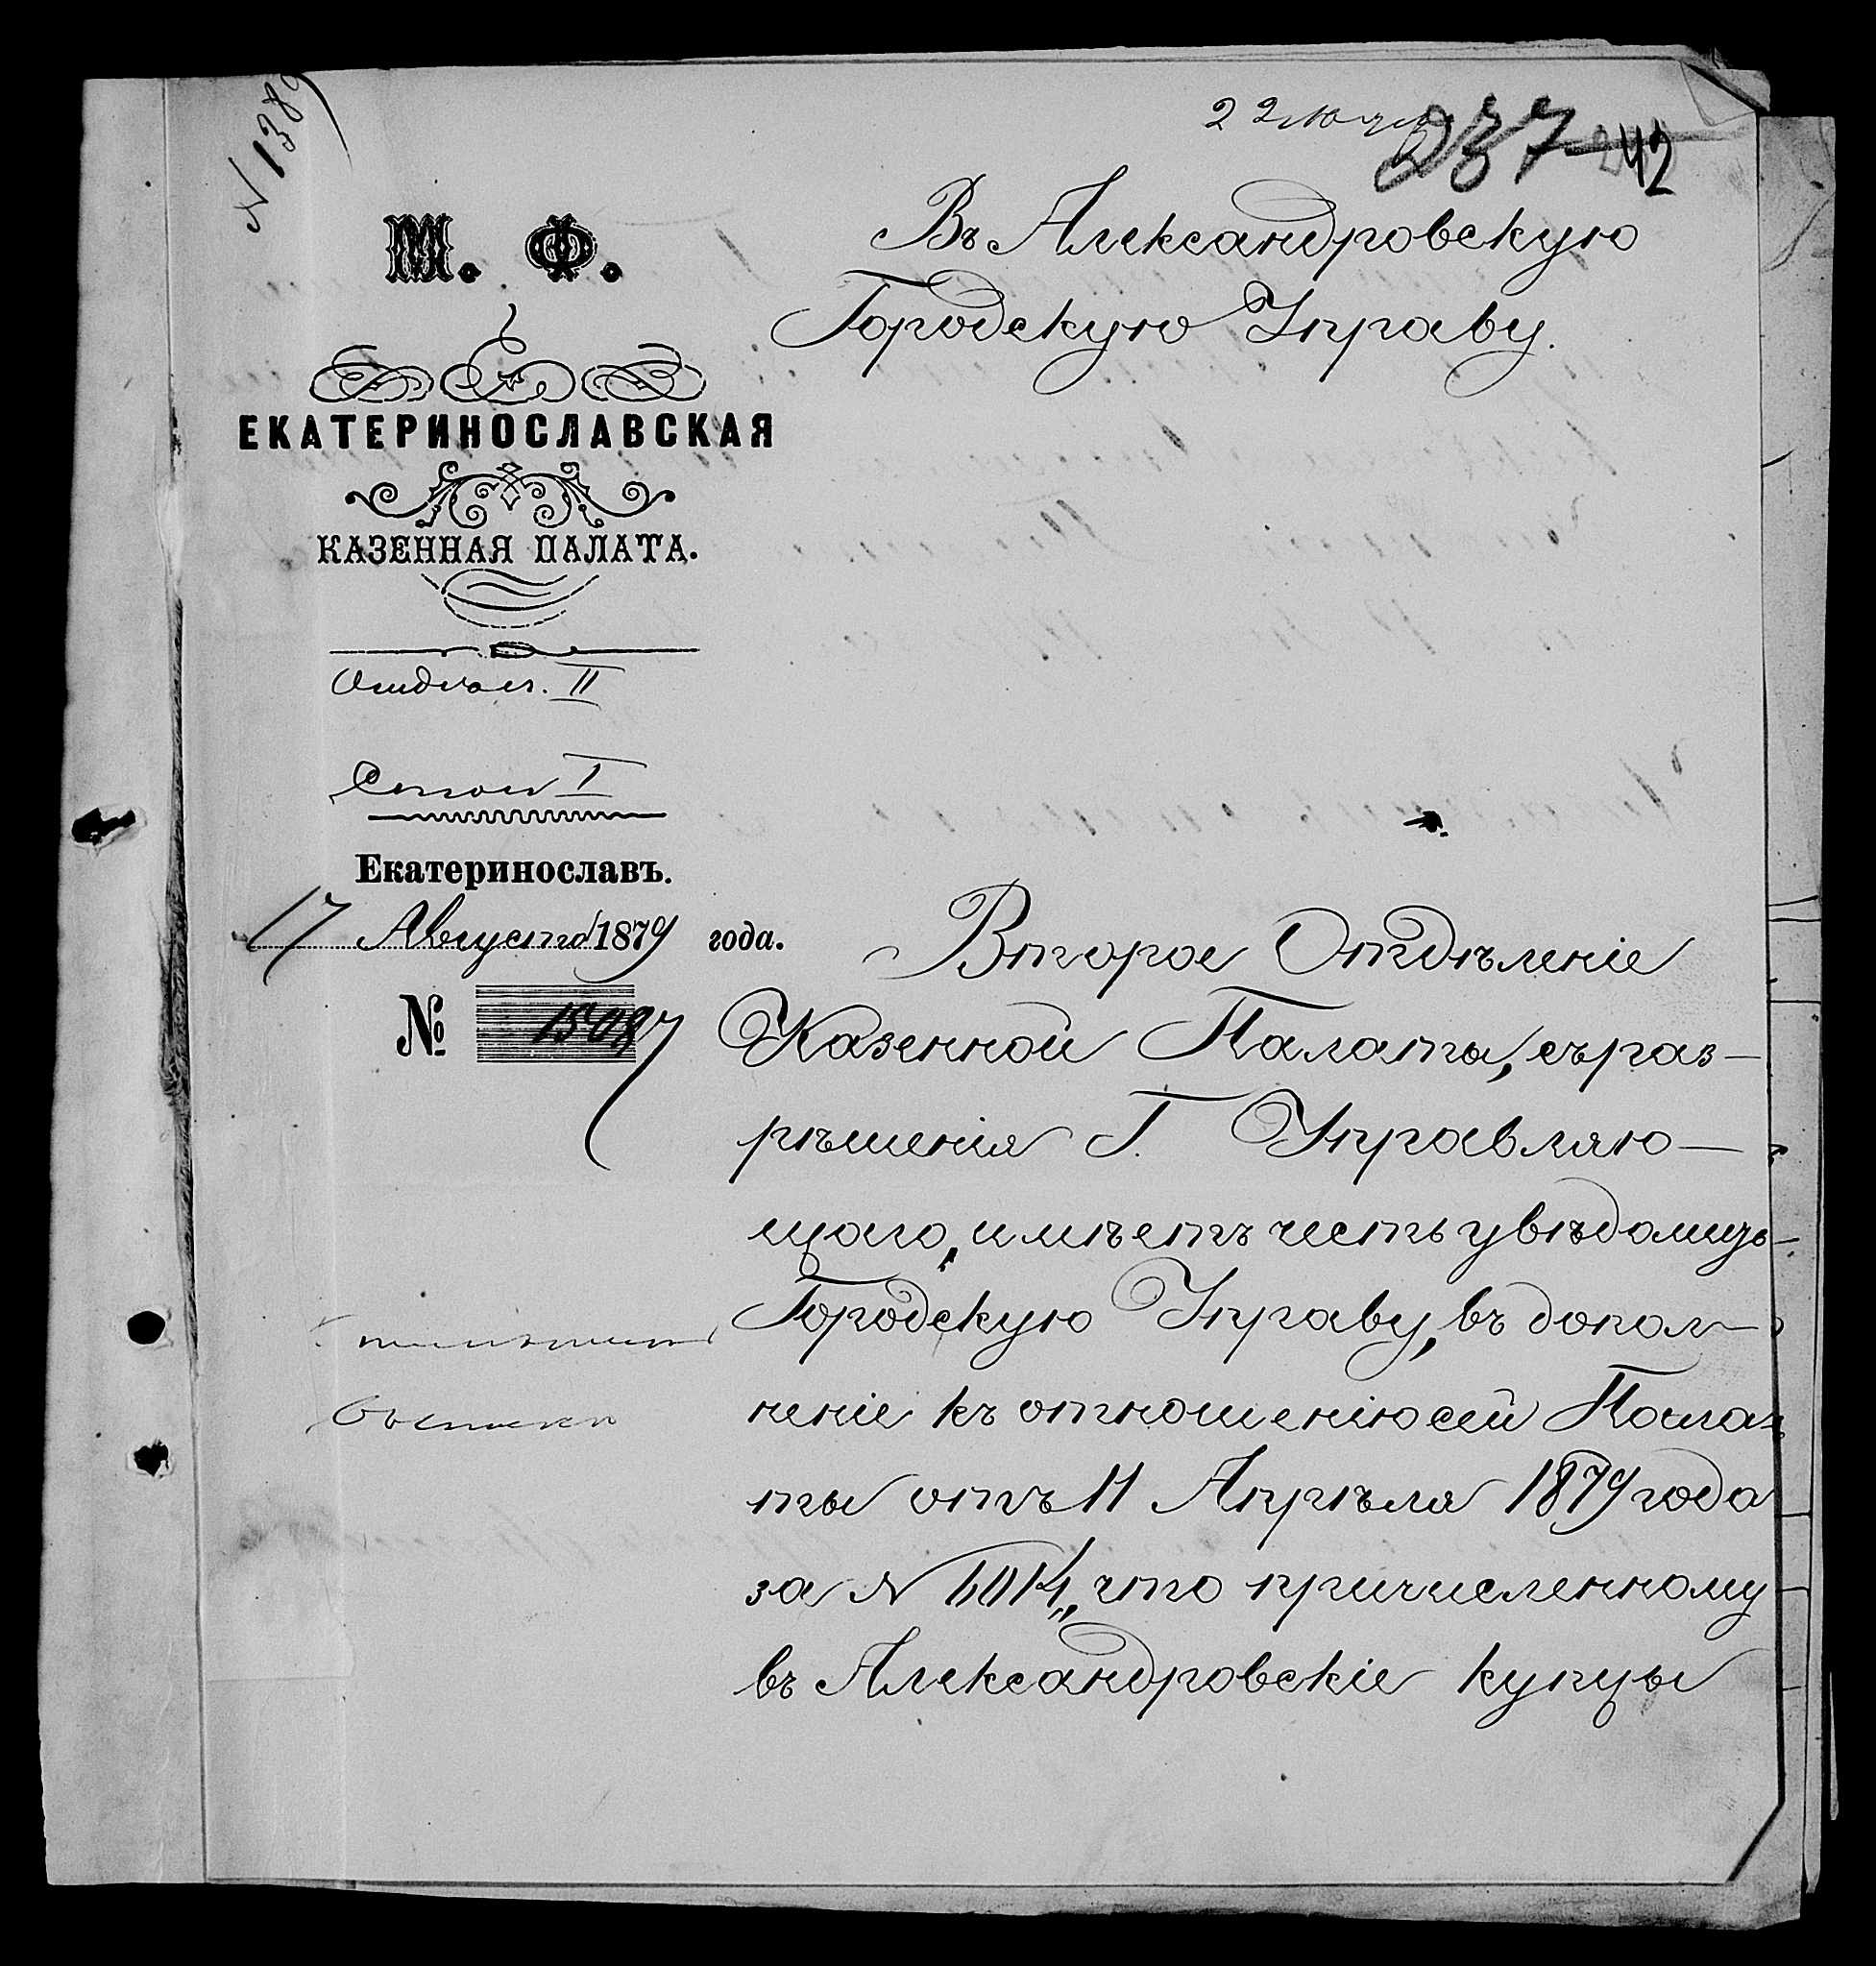 N 1389
237 242
М. Ф.
ЕКАТЕРИНОСЛАВСКАЯ
КАЗЕННАЯ ПАЛАТА.
Отдѣл. II
Столъ I
Екатеринославъ.
17 Августа 1879 года.
№ 15087
Въ Александровскую
Городскую Управу.
Второе Отдѣленіе
Казенной Палаты, съ раз-
рѣшенія Г. Управляю-
щаго, имѣетъ честь увѣдомить
Городскую Управу, въ допол-
неніе къ отношенію сей Пала-
ты отъ 11 Апрѣля 1879 года
за N что причисленному
въ Александровскіе купцы